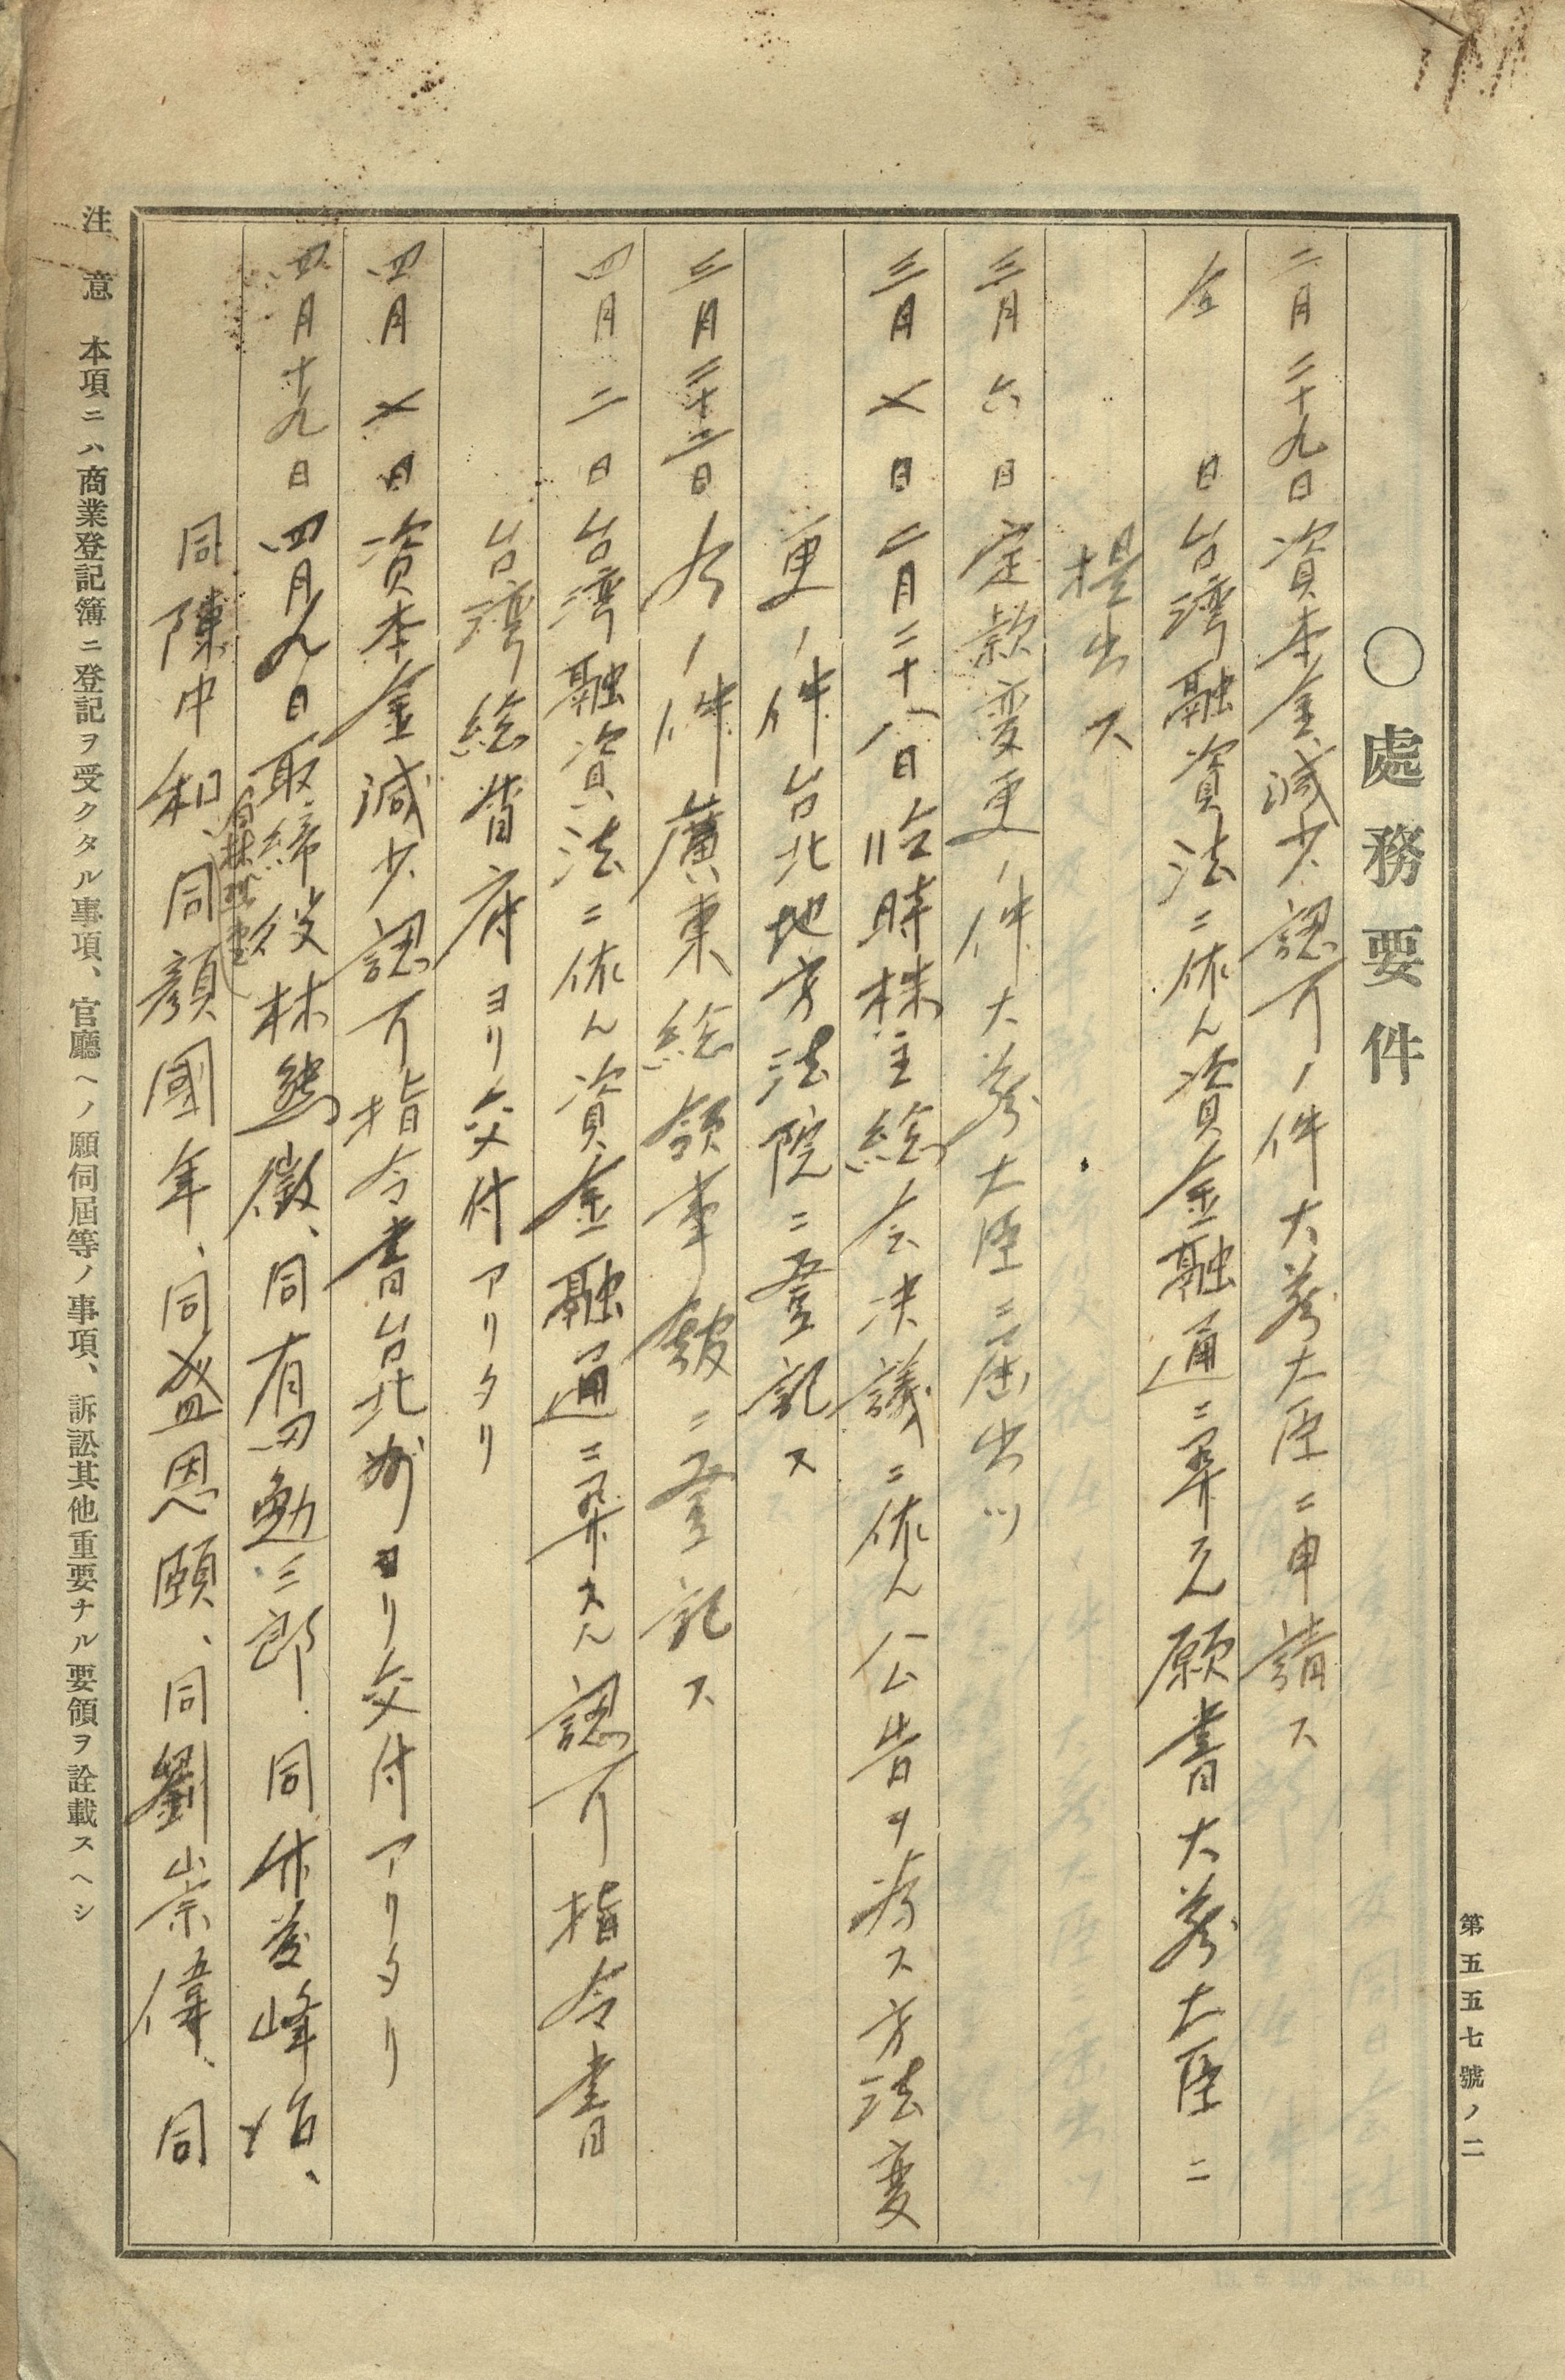 第五五七號ノ二
〇處務要件
二月二十九日資本金減少認可ノ件大蔵大臣ニ申請ス
仝日台湾融資法ニ依ル資金融通ニ関スル願書大蔵大臣ニ
提出ス
三月六日定款変更ノ件大蔵大臣ニ届出ツ
三月七日二月二十八日臨時株主総会決議ニ依ル公告ヲ為ス方法変
更ノ件台北地方法院ニ登記ス
三月二十二日仝ノ件廣東総領事館ニ登記ス
四月二日台湾融資法ニ依ル資金融通ニ関スル認可指令書
台湾総督府ヨリ交付アリタリ
四月七日資本金減少認可指令書台北州ヨリ交付アリタリ
四月十九日四月九日取締役林熊徴、同有田勉三郎、同
峰
同陳中和、同顔國年、同盛恩頤、同劉崇偉、同
注意 本項ニハ商業登記簿ニ登記ヲ受クタル事項、官廳ヘノ願伺屆等ノ事項、訴訟其他重要ナル要領ヲ詮載スヘシ